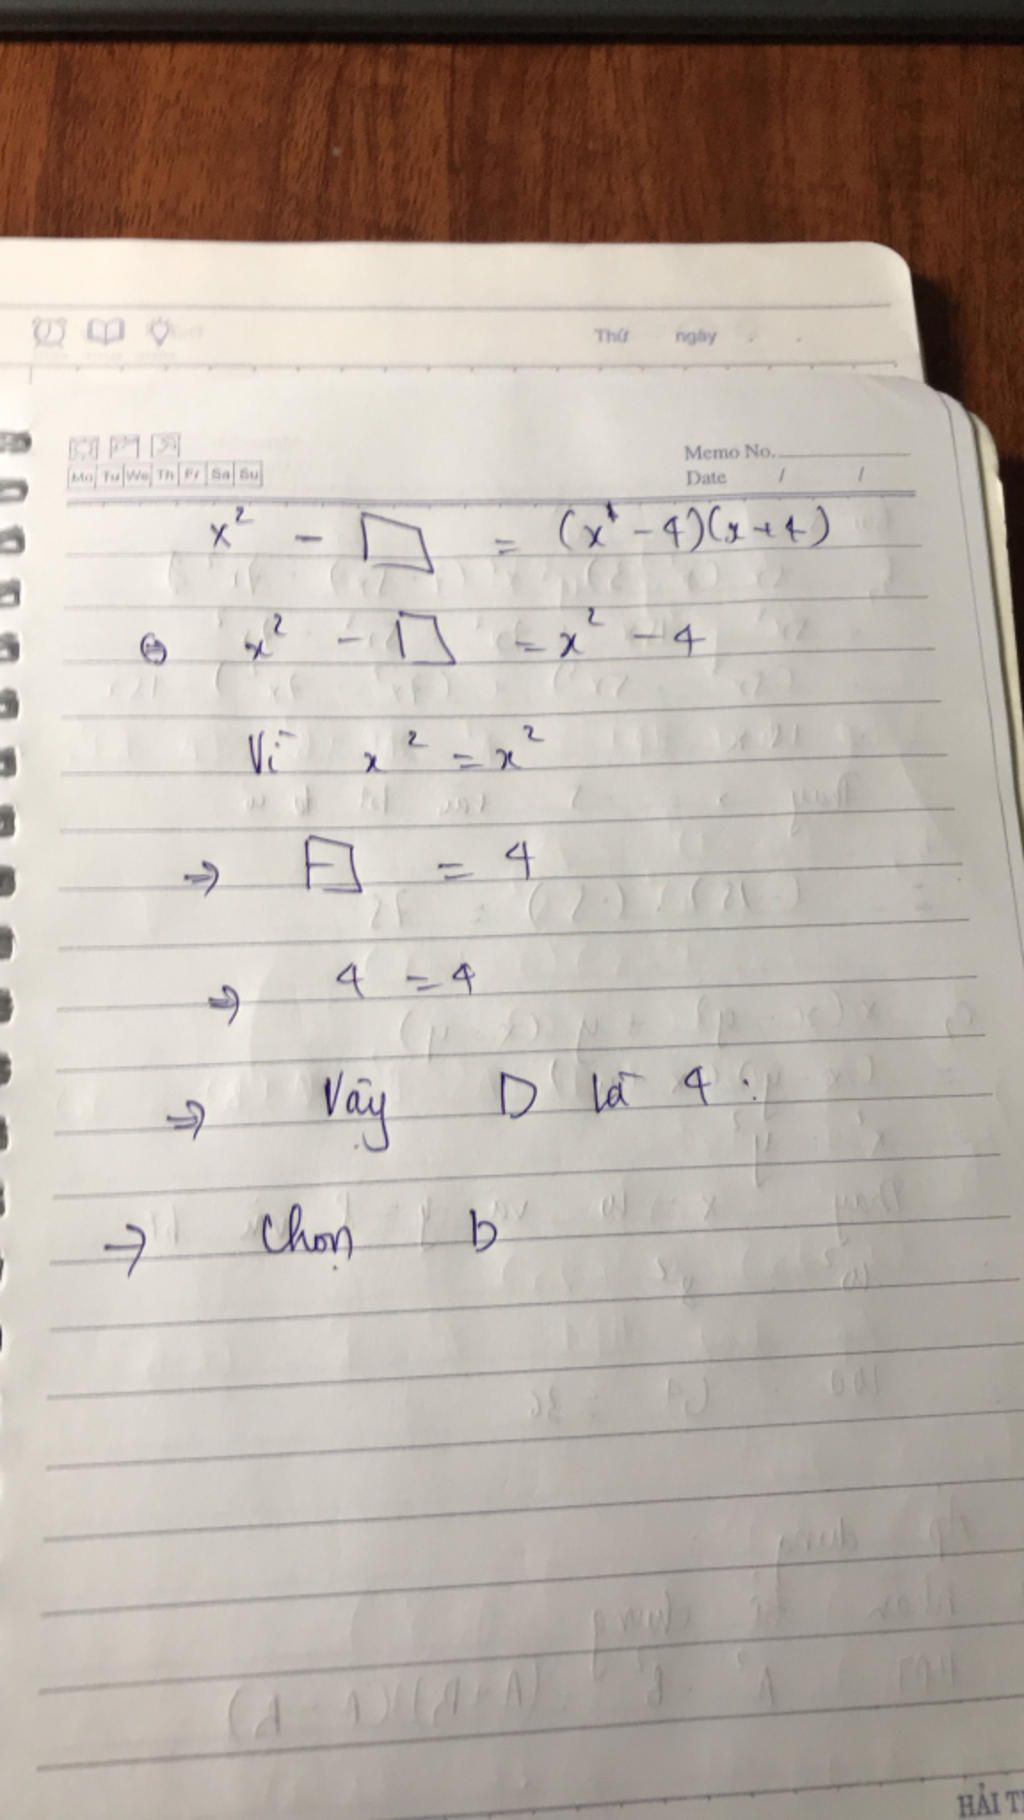 Thứ ngày
Memo No.
Mo Tu We Th Fr Sa Su
Date / /
x² - □ = (x - 4)(x + 4)
⇔ x² - □ = x² - 4
Vì x² = x²
⇒ □ = 4
⇒ 4 = 4
⇒ Vậy □ là 4 .
→ Chọn b
HẢI T